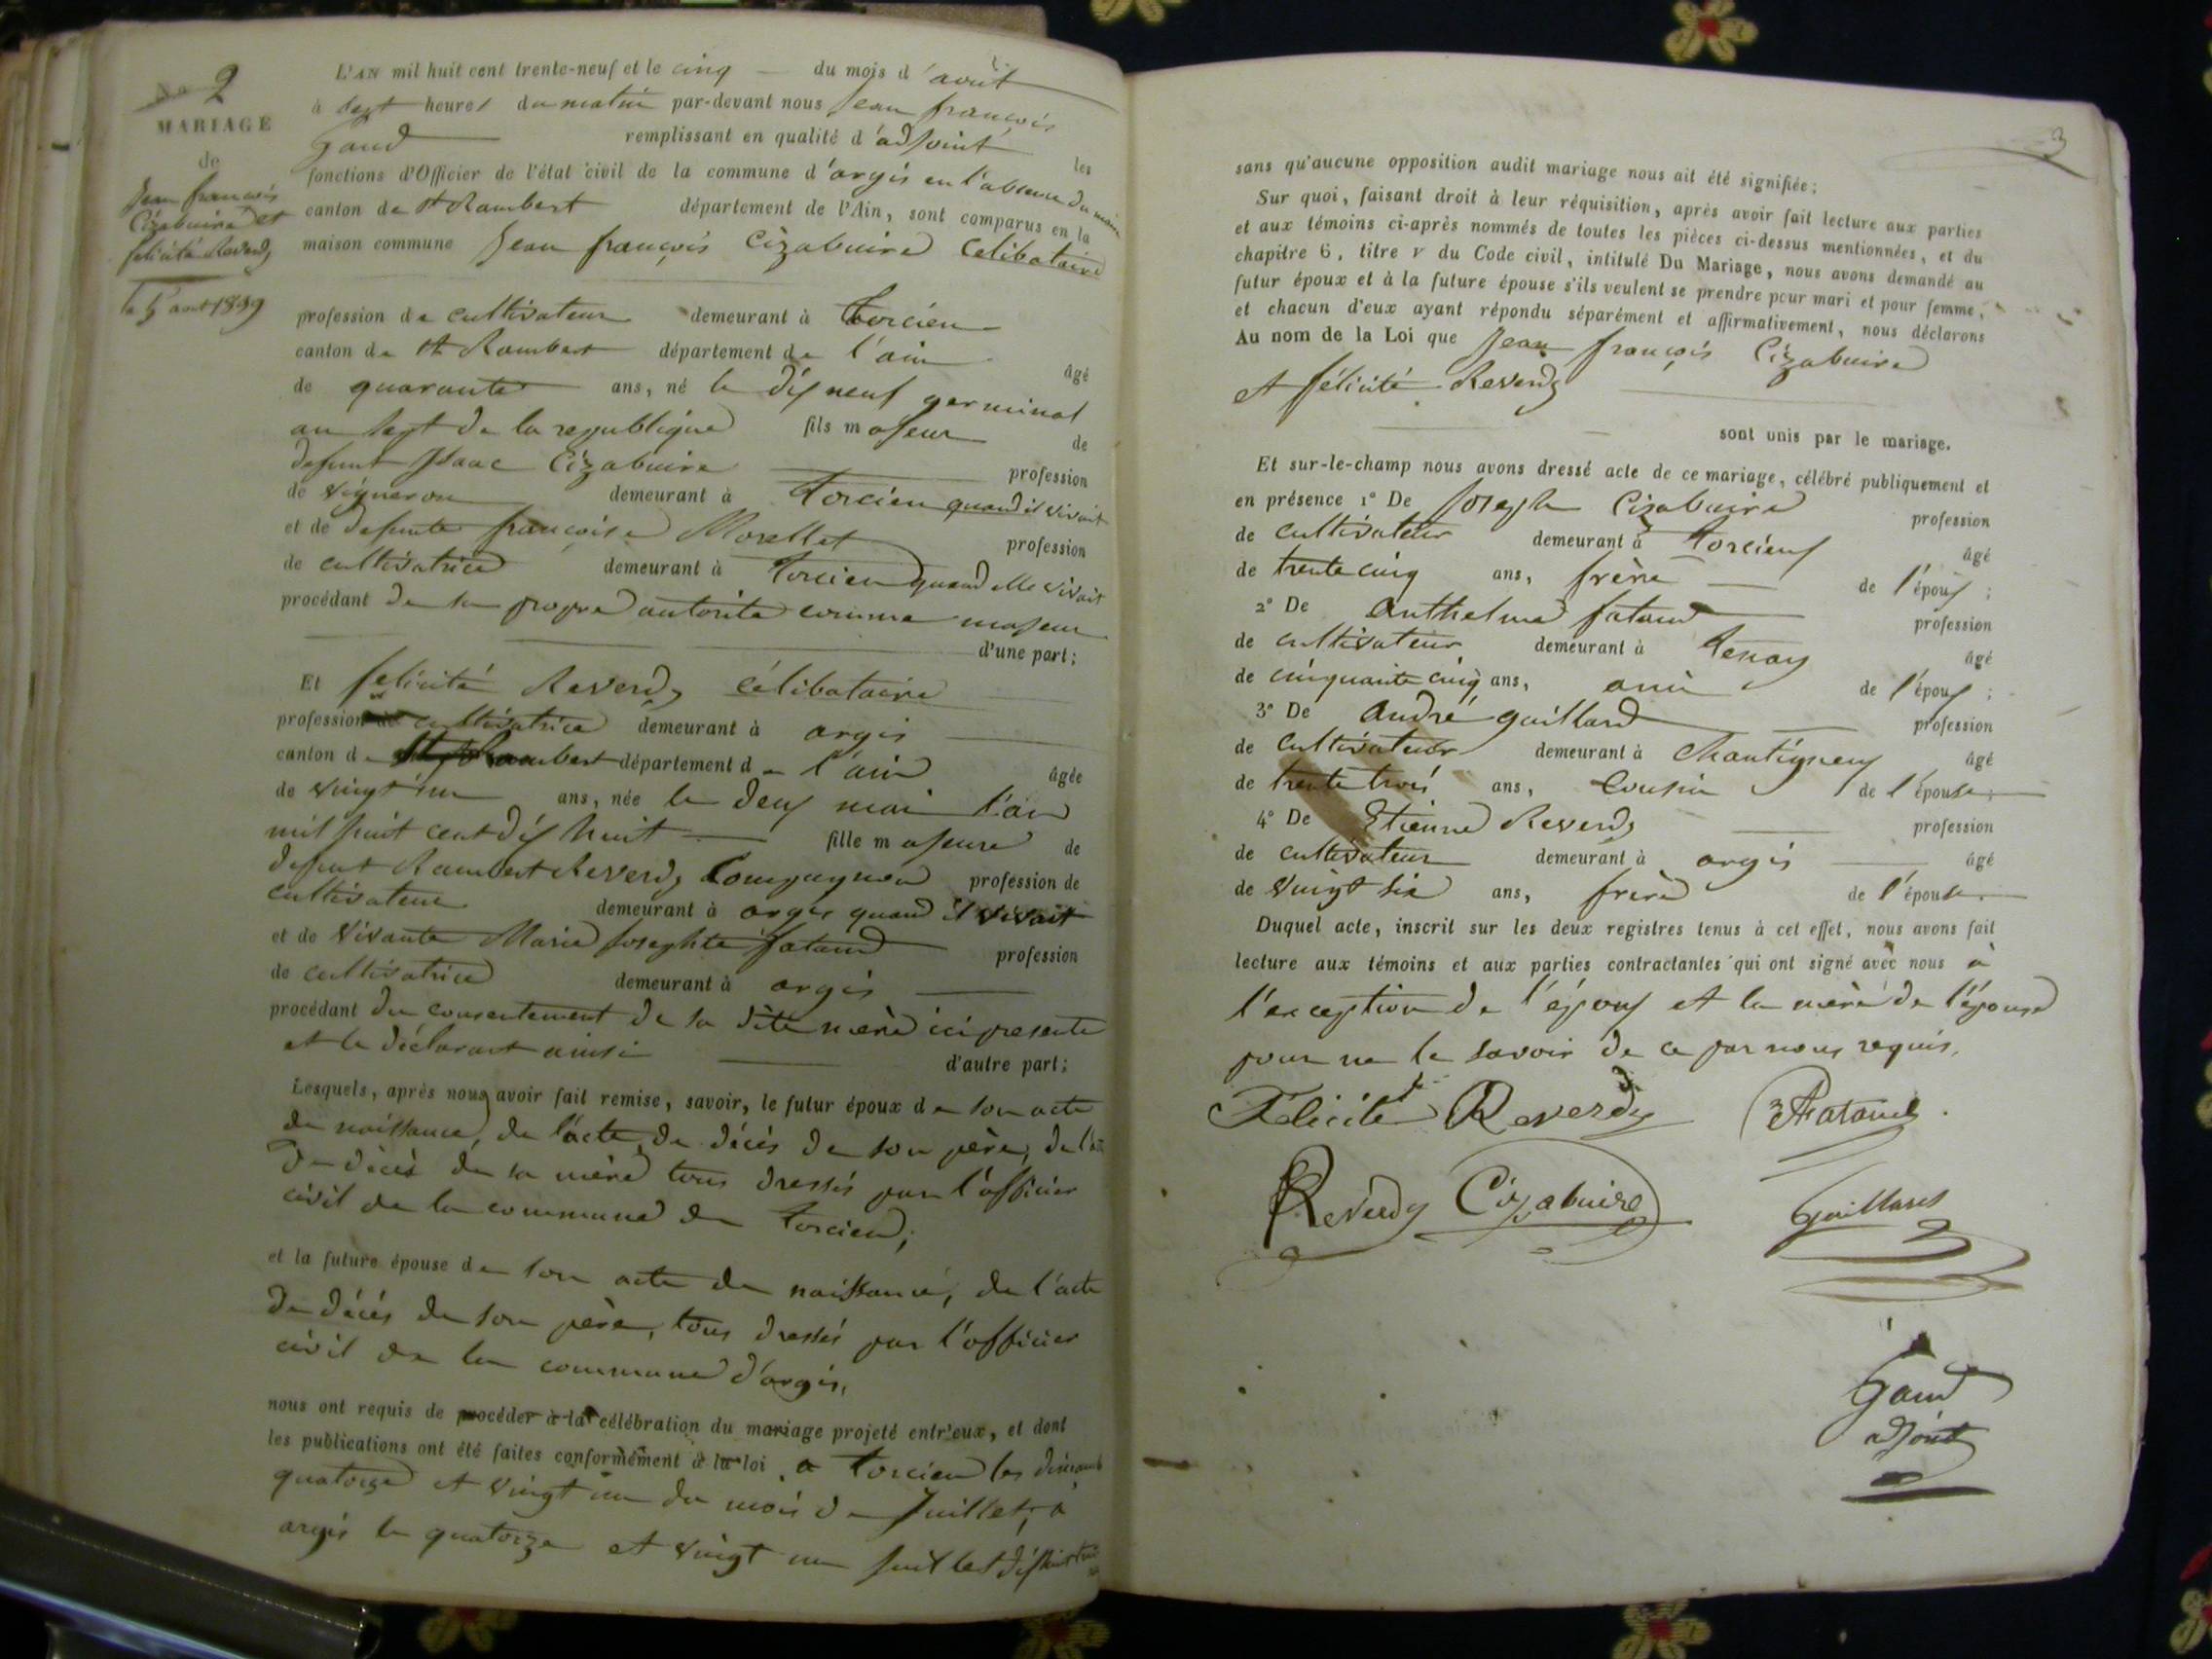 No 2
MARIAGE
de
Jean françois
Cizabuire et
felicité Reverdy
le 5 aout 1839
L'AN mil huit cent trente-neuf et le cinq du mois d'août
à sept heures du matin par-devant nous Jean françois
Gaud remplissant en qualité d'adjoint les
fonctions d'Officier de l'état civil de la commune d'argis en l'absence du maire
canton de St Rambert département de l'Ain, sont comparus en la
maison commune Jean françois Cizabuire Celibataire
profession de cultivateur demeurant à torcieu
canton de St Rambert département de l'ain âgé
de quarante ans, né le dix neuf germinal
an sept de la republique fils majeur de
defunt Isaac Cizabuire profession
de vigneron demeurant à Torcieu quand il vivait
et de defunte françoise Morellet profession
de cultivatrice demeurant à Torcieu quand elle vivait
procédant de sa propre autorité comme majeur
d'une part;
Et felicité Reverdy célibataire
profession de cultivatrice demeurant à argis
canton de St Rambert département de l'ain âgée
de vingt un ans, née le deux mai l'an
mil huit cent dix huit fille majeure de
defunt Rambert Reverdy Compagnon profession de
cultivateur demeurant à argis quand il vivait
et de vivante Marie Josephte fataud profession
de cultivatrice demeurant à argis
procédant du consentement de sa dite mère ici presente
et le déclarant ainsi d'autre part;
Lesquels, après nous avoir fait remise, savoir, le futur époux de son acte
de naissance, de l'acte de décès de son père, de l'acte
de décès de sa mère tous dressés par l'officier
civil de la commune de Torcieu;
et la future épouse de son acte de naissance, de l'acte
de décès de son père, tous dressés par l'officier
civil de la commune d'argis,
nous ont requis de procéder à la célébration du mariage projeté entr'eux, et dont
les publications ont été faites conformément à la loi, a Torcieu les dimanches
quatorze et vingt un du mois de Juillet, à
argis le quatorze et vingt un juillet
3
sans qu'aucune opposition audit mariage nous ait été signifiée;
Sur quoi, faisant droit à leur réquisition, après avoir fait lecture aux parties
et aux témoins ci-après nommés de toutes les pièces ci-dessus mentionnées, et du
chapitre 6, titre V du Code civil, intitulé Du Mariage, nous avons demandé au
futur époux et à la future épouse s'ils veulent se prendre pour mari et pour femme;
et chacun d'eux ayant répondu séparément et affirmativement, nous déclarons
Au nom de la Loi que Jean françois Cizabuire
et félicité Reverdy
sont unis par le mariage.
Et sur-le-champ nous avons dressé acte de ce mariage, célébré publiquement et
en présence 1° De Joseph Cizabuire profession
de cultivateur demeurant à Torcieux âgé
de trente cinq ans, frère de l'époux;
2° De Anthelme fataud profession
de cultivateur demeurant à Tenay âgé
de cinquante cinq ans, ami de l'époux;
3° De André gaillard profession
de cultivateur demeurant à Chantigneux âgé
de trente trois ans, Cousin de l'épouse;
4° De Etienne Reverdy profession
de cultivateur demeurant à argis âgé
de vingt six ans, frère de l'épouse.
Duquel acte, inscrit sur les deux registres tenus à cet effet, nous avons fait
lecture aux témoins et aux parties contractantes qui ont signé avec nous à
l'exception de l'époux et la mère de l'épouse
pour ne le savoir de ce par nous requis.
Félicité Reverdy Fataud
Reverdy Cizabuire Gaillard
Gaud
adjoint